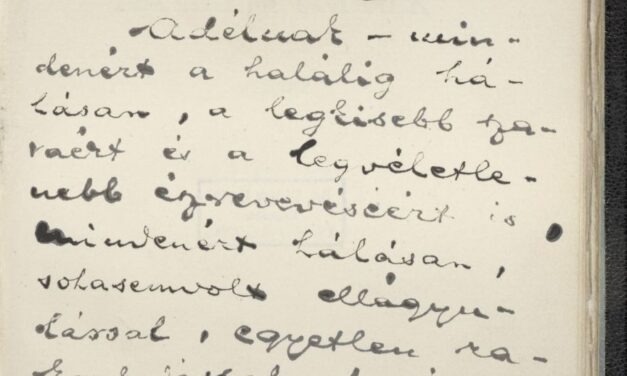 Adélnak – min-
denért a halálig há-
lásan, a legkisebb sza-
váért és a legvéletle-
nebb észrevevéséért is
mindenért hálásan,
sohasemvolt ellágyu-
lással, egyetlen ra-